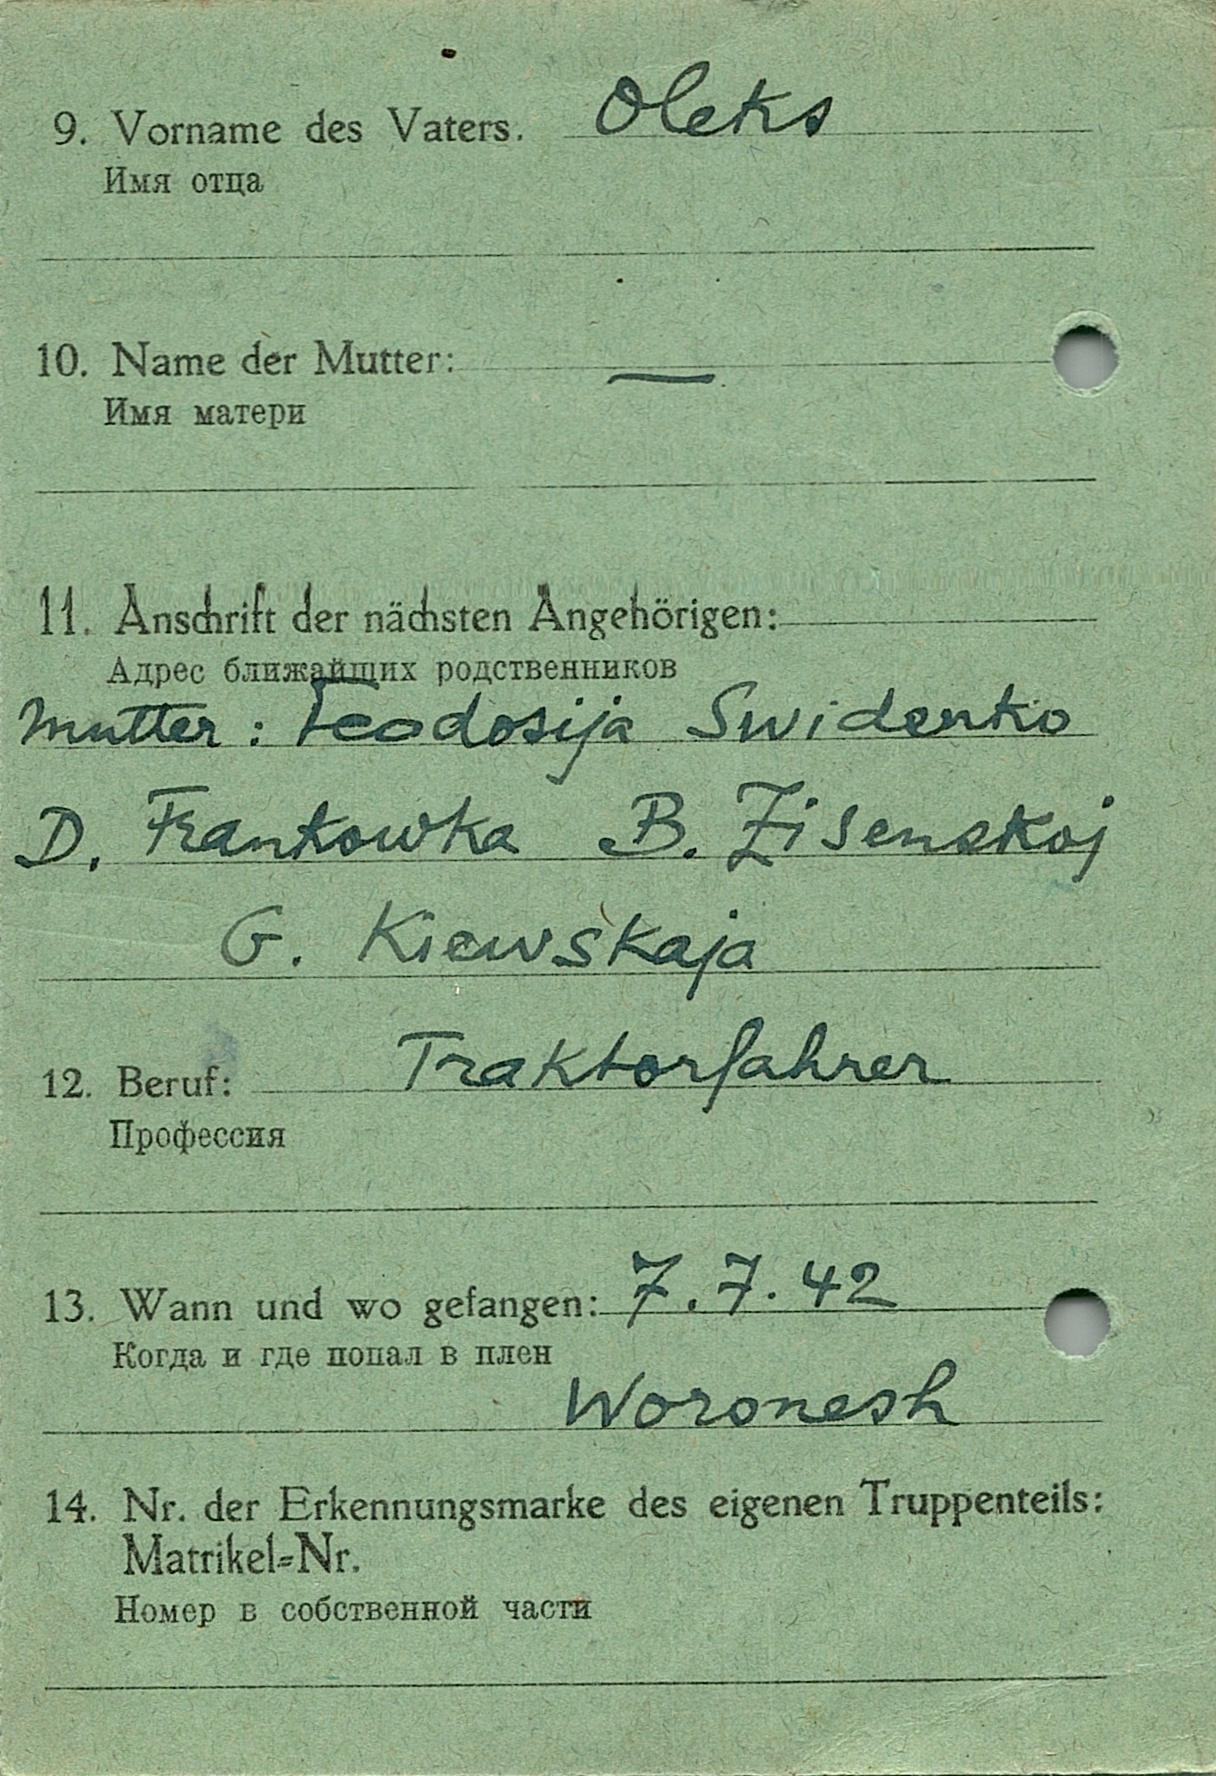 9. Vorname des Vaters. Oleks
Имя отца
10. Name der Mutter: —
Имя матери
11. Anschrift der nächsten Angehörigen:
Адрес ближайщих родственников
Mutter: Feodosija Swidenko
D. Frankowka B. Zisenskoj
G. Kiewskaja
12. Beruf: Traktorfahrer
Профессия
13. Wann und wo gefangen: 7.7.42
Когда и где попал в плен
Woronesh
14. Nr. der Erkennungsmarke des eigenen Truppenteils:
Matrikel-Nr.
Номер в собственной части